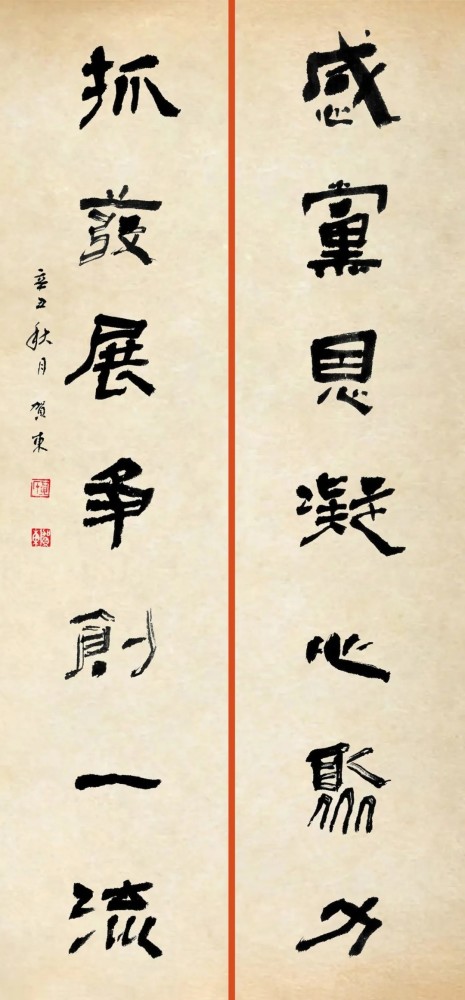 感黨恩凝心聚力
抓發展爭創一流
辛丑秋月賀東